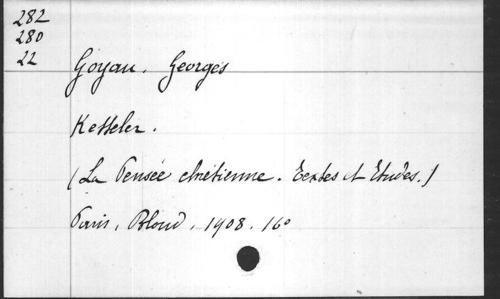 282
280
22
Goyau. Georges
Ketteler.
(La Pensée chrétienne. Textes et Etudes.)
Paris, Bloud, 1908. 16°